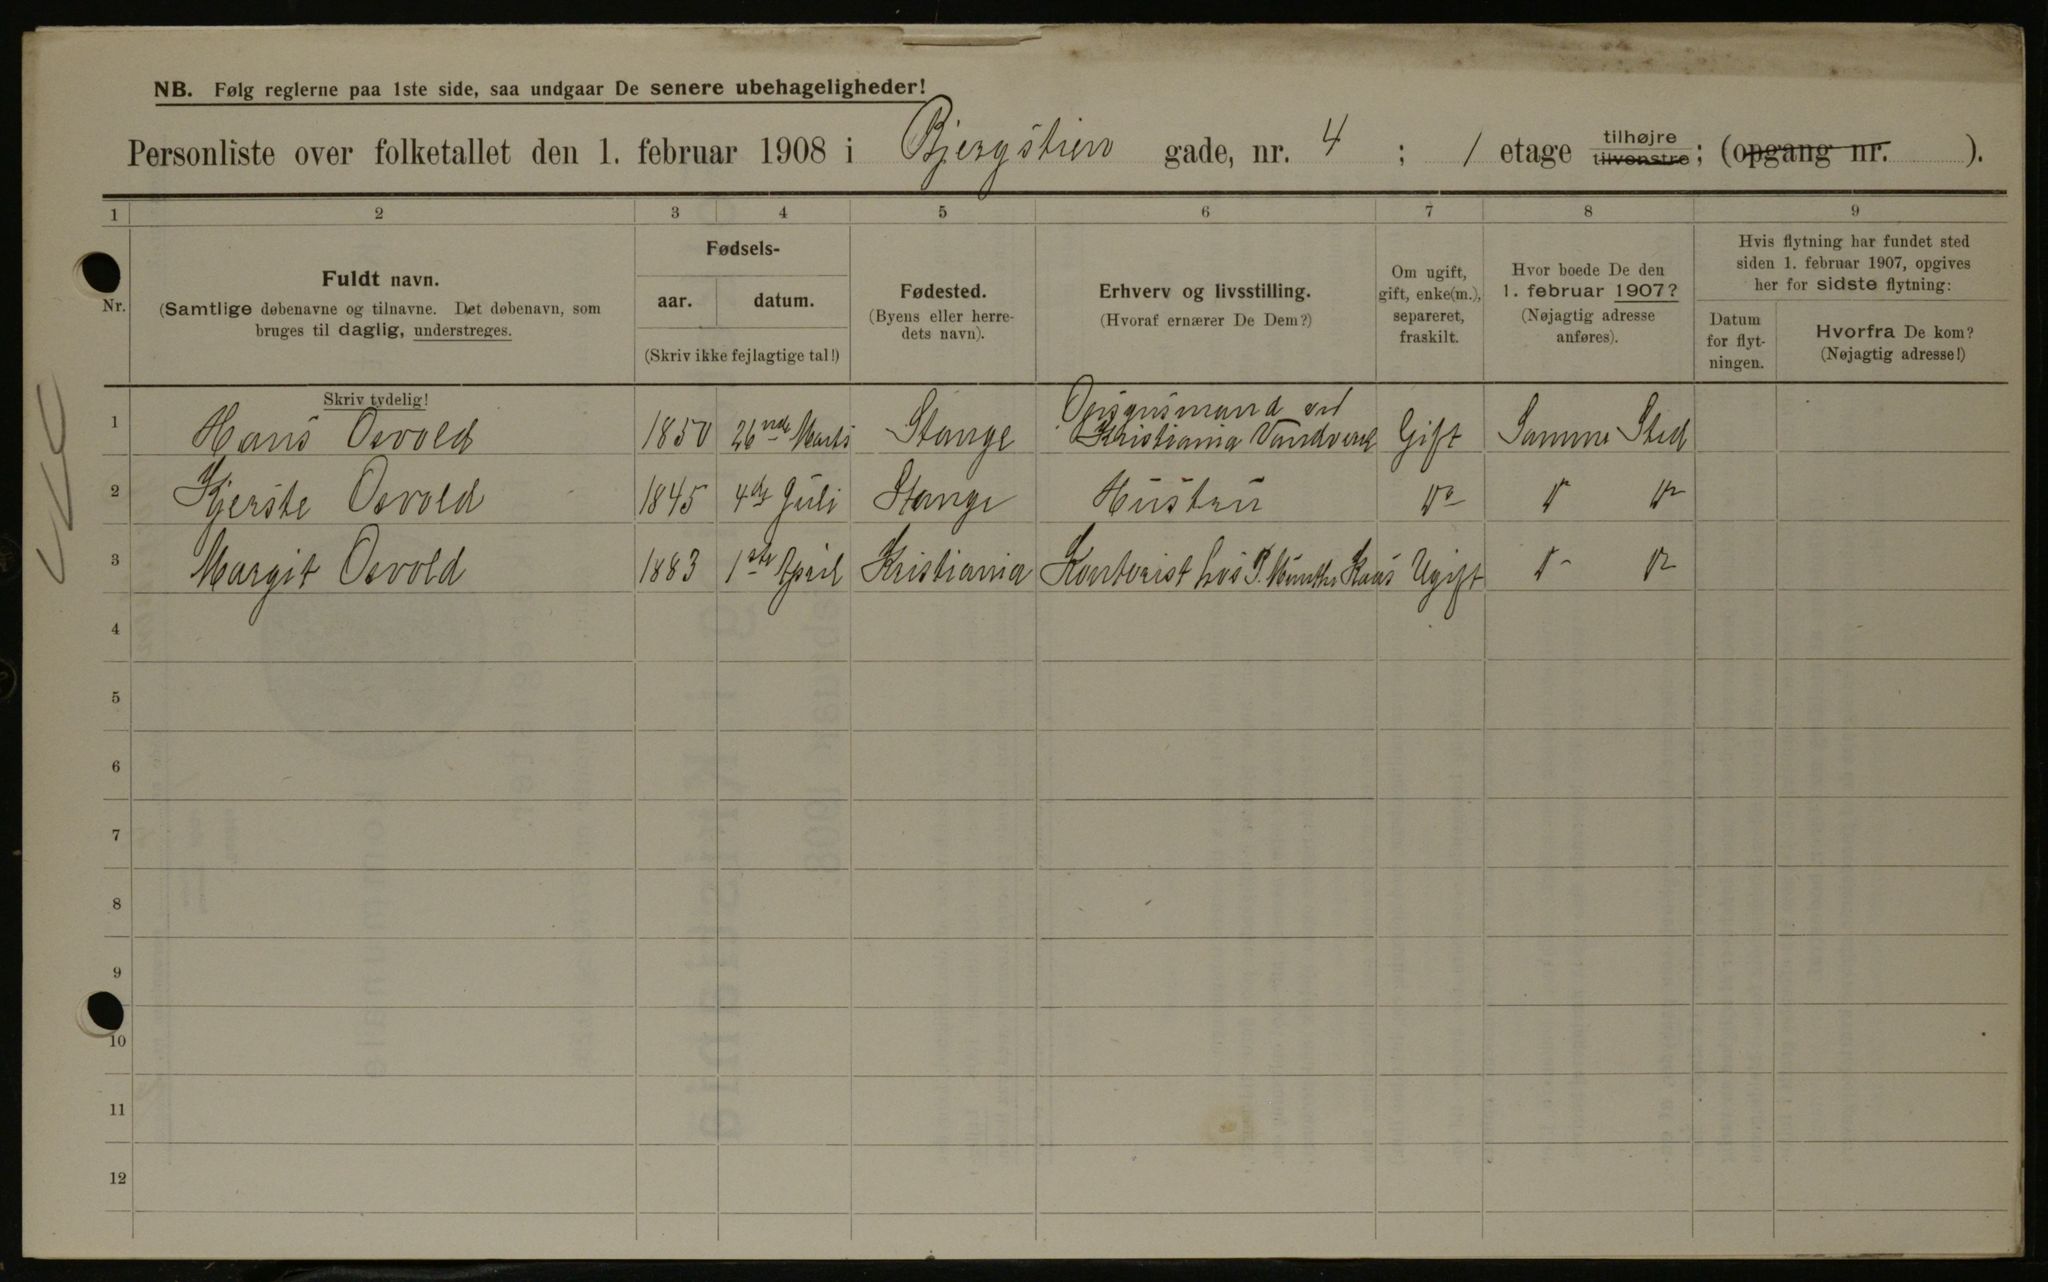 NB. Følg reglerne paa 1ste side, saa undgaar De senere ubehageligheder!
Personliste over folketallet den 1. februar 1908 i Bjergstien gade, nr. 4 ; 1 etage tilhøjre tilvenstre; (opgang nr. ).
1 2 3 4 5 6 7 8 9
Nr.
Fuldt navn.
(Samtlige døbenavne og tilnavne. Det døbenavn, som
bruges til daglig, understreges.
Fødsels-
aar. datum.
(Skriv ikke fejlagtige tal!)
Fødested.
(Byens eller herre-
dets navn).
Erhverv og livsstilling.
(Hvoraf ernærer De Dem?)
Om ugift,
gift, enke(m.),
separeret,
fraskilt.
Hvor boede De den
1. februar 1907?
(Nøjagtig adresse
anføres).
Hvis flytning har fundet sted
siden 1. februar 1907, opgives
her for sidste flytning:
Datum
for flyt-
ningen.
Hvorfra De kom?
(Nøjagtig adresse!)
Skriv tydelig!
1 Hans Osvold 1850 26nde Marts Stange Opsynsmand ved
Kristiania Vandverk Gift Samme Sted
2 Kjerste Osvold 1845 4de Juli Stange Hustru do do do
3 Margit Osvold 1883 1ste April Kristiania Kontorist hos P. Munthe Kaas Ugift do do
4
5
6
7
8
9
10
11
12